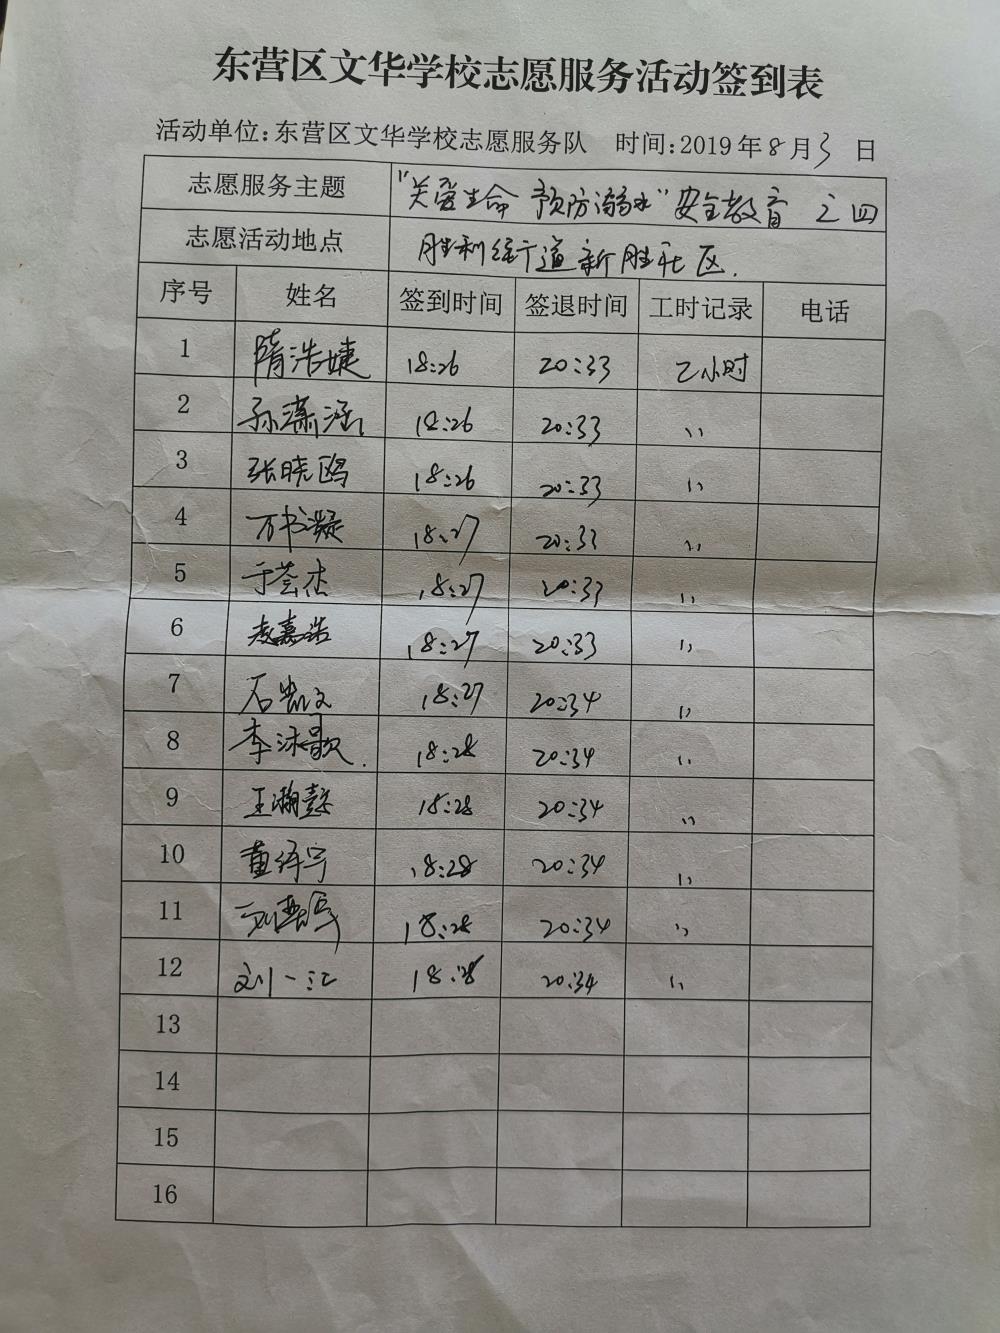 东营区文华学校志愿服务活动签到表
活动单位:东营区文华学校志愿服务队 时间:2019年8月3日
志愿服务主题 "关爱生命 预防溺水"安全教育 之四
志愿活动地点 胜利街道新胜社区.
序号 姓名 签到时间 签退时间 工时记录 电话
1 隋浩婕 18:26 20:33 2小时
2 孙潇涵 18:26 20:33 〃
3 张晓鸥 18:26 20:33 〃
4 万书凝 18:27 20:33 〃
5 于荟杰 18:27 20:33 〃
6 凌嘉浩 18:27 20:33 〃
7 石凯文 18:27 20:34 〃
8 李沐歌 18:28 20:34 〃
9 王瀚懿 18:28 20:34 〃
10 董绎宁 18:28 20:34 〃
11 刘 18:28 20:34 〃
12 刘一江 18:28 20:34 〃
13
14
15
16